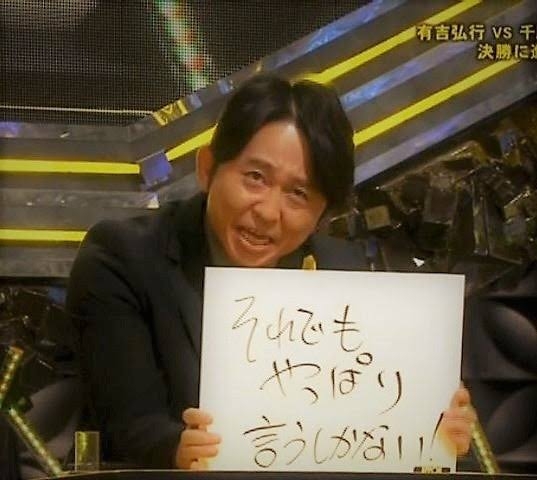 有吉弘行 VS 千
決勝に進
それでも
やっぱり
言うしかない!